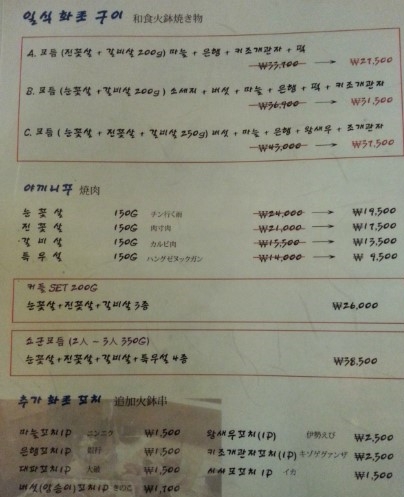 일식 화로 구이 和食火鉢焼き物
A. 모듬 (진꽃살 + 갈비살 200g) 마늘 + 은행 + 키조개관자 + 떡
₩33,900 → ₩27,500
B. 모듬 (눈꽃살 + 갈비살 200g) 소세지 + 버섯 + 마늘 + 은행 + 떡 + 키조개관자
₩36,900 → ₩31,500
C. 모듬 ( 눈꽃살 + 진꽃살 + 갈비살 250g) 버섯 + 마늘 + 은행 + 왕새우 + 조개관자
₩43,000 → ₩37,500
야끼니꾸 焼肉
눈 꽃 살 150G ₩24,000 → ₩19,500
진 꽃 살 150G ₩21,000 → ₩17,500
갈 비 살 150G カルビ肉 ₩15,500 → ₩13,500
특 우 설 150G ₩14,000 → ₩ 9,500
커플 SET 200G
눈꽃살+진꽃살+갈비살 3종 ₩26,000
소군모듬 (2人 ~ 3人 350G)
눈꽃살+진꽃살+갈비살+특우설 4종 ₩38,500
추가 화로 꼬치 追加火鉢串
마늘꼬치1P ニンニク ₩1,500
은행꼬치1P 銀行 ₩1,500
대파꼬치1P 大破 ₩1,500
버섯(양송이)꼬치1P きのこ ₩1,700
왕새우꼬치(1P) 伊勢えび ₩2,500
키조개관자꼬치(1P) キゾゲグァンザ ₩2,500
시샤모꼬치 1P イカ ₩1,500